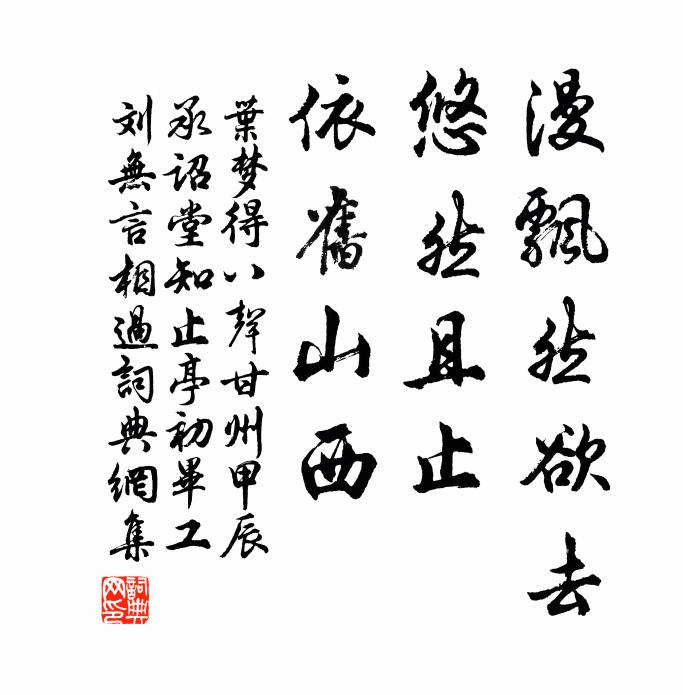 漫飄然欲去
悠然且止
依舊山西
葉梦得八聲甘州甲辰
承诏堂知止亭初畢工
刘無言相過詞典網集
詞典網印